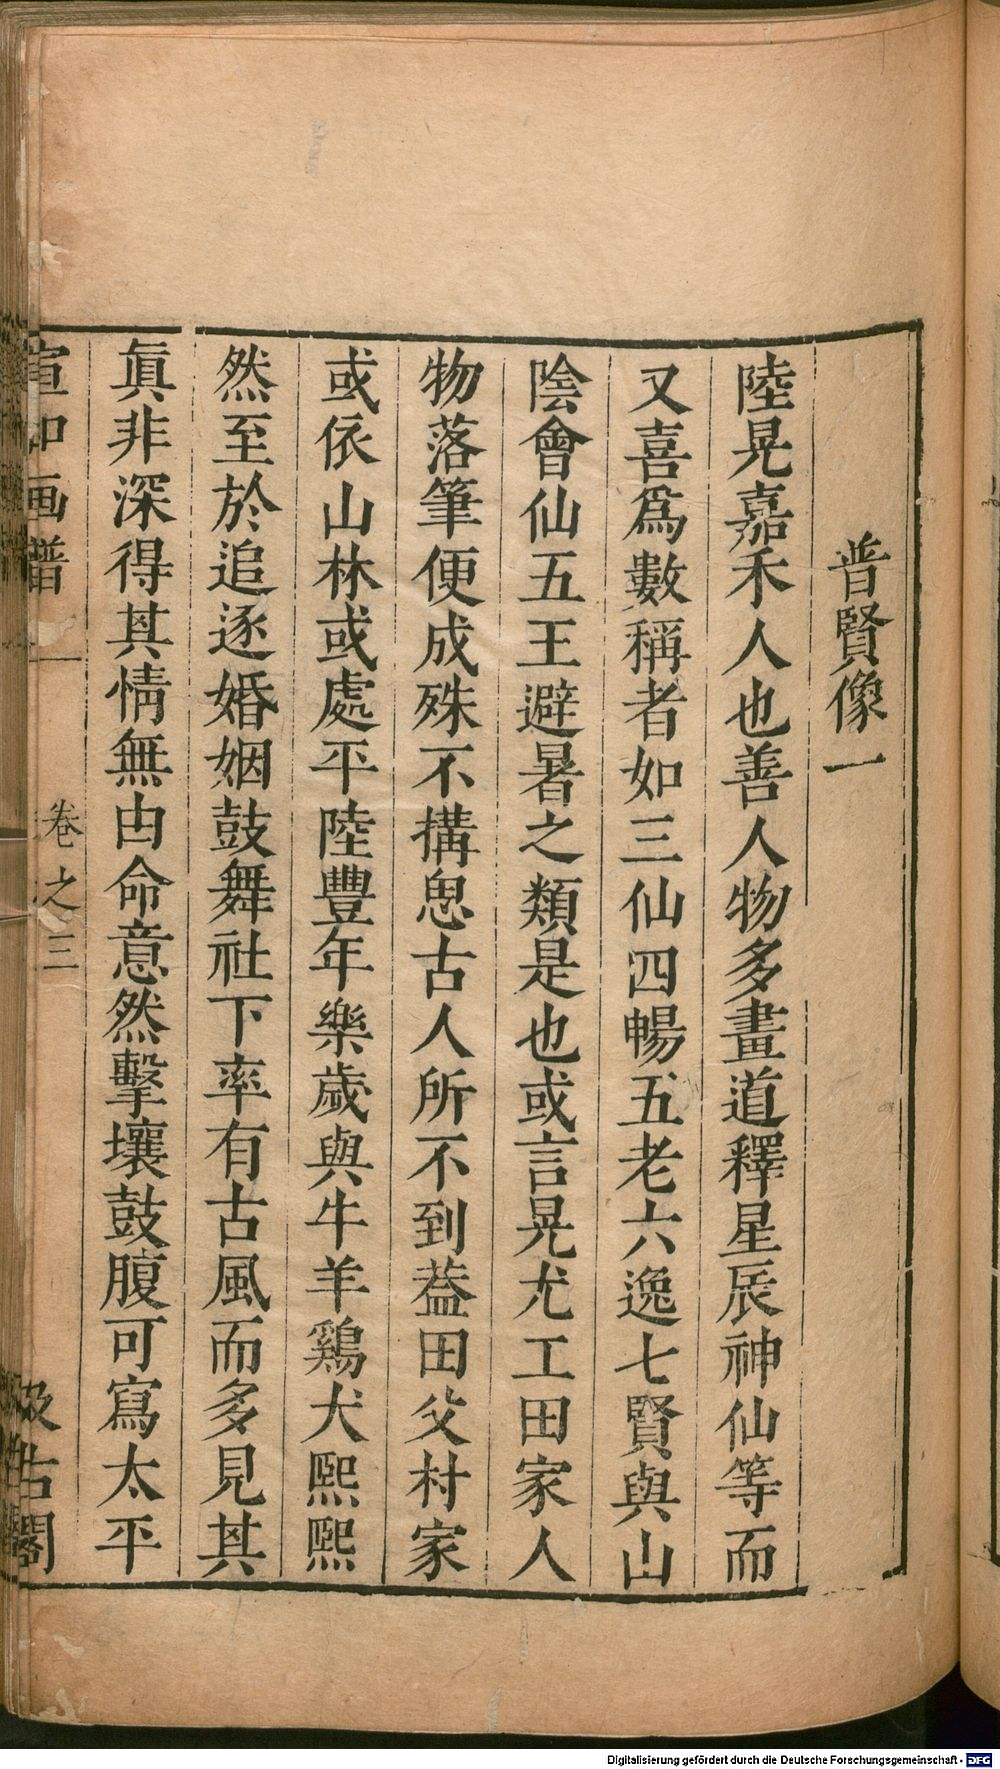 普賢像一
陸晃嘉禾人也善人物多畫道釋星辰神仙等而
又喜爲數稱者如三仙四暢五老六逸七賢與山
陰會仙五王避暑之類是也或言晃尤工田家人
物落筆便成殊不構思古人所不到葢田父村家
或依山林或處平陸豐年樂歲與牛羊鷄犬熙熙
然至於追逐婚姻鼓舞社下率有古風而多見其
眞非深得其情無由命意然擊壤鼓腹可寫太平
宣和画譜 卷之三 汲古閣
Digitalisierung gefördert durch die Deutsche Forschungsgemeinschaft - DFG